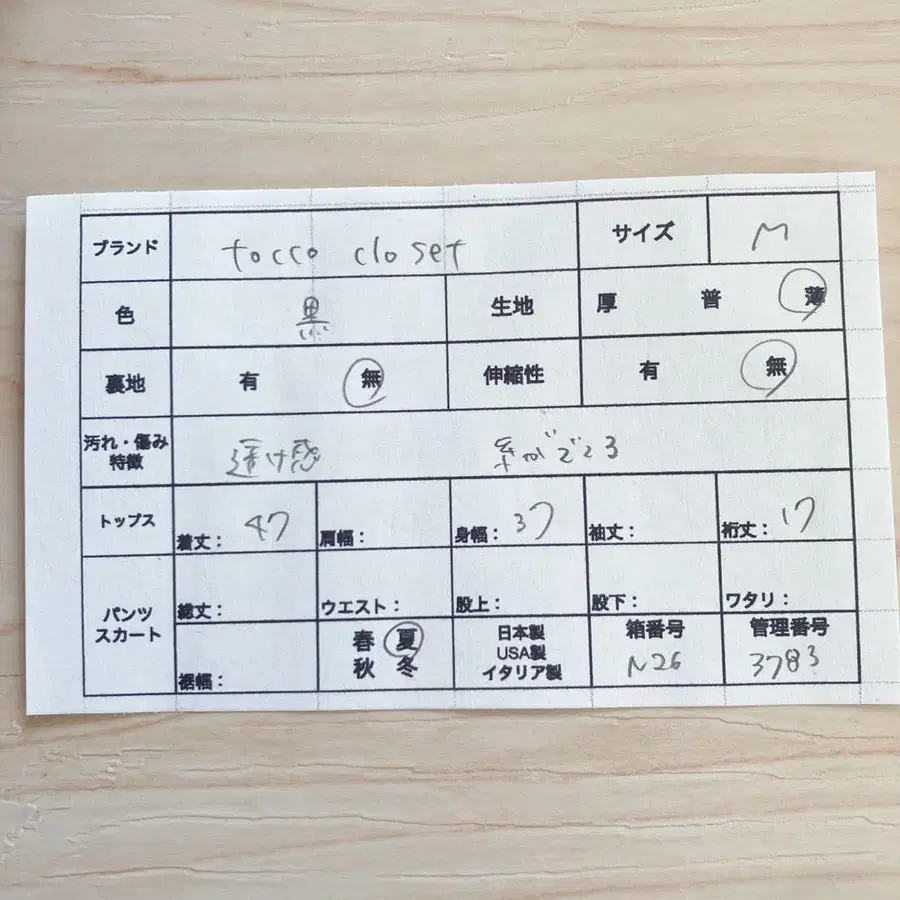 ブランド tocco closet サイズ M
色 黒 生地 厚 普 薄
裏地 有 無 伸縮性 有 無
汚れ・傷み
特徴 透け感 糸がでてる
トップス 着丈: 47 肩幅: 身幅: 37 袖丈: 裄丈: 17
パンツ
スカート
総丈: ウエスト: 股上: 股下: ワタリ:
裾幅:
春 夏
秋 冬
日本製
USA製
イタリア製
箱番号
N26
管理番号
3783